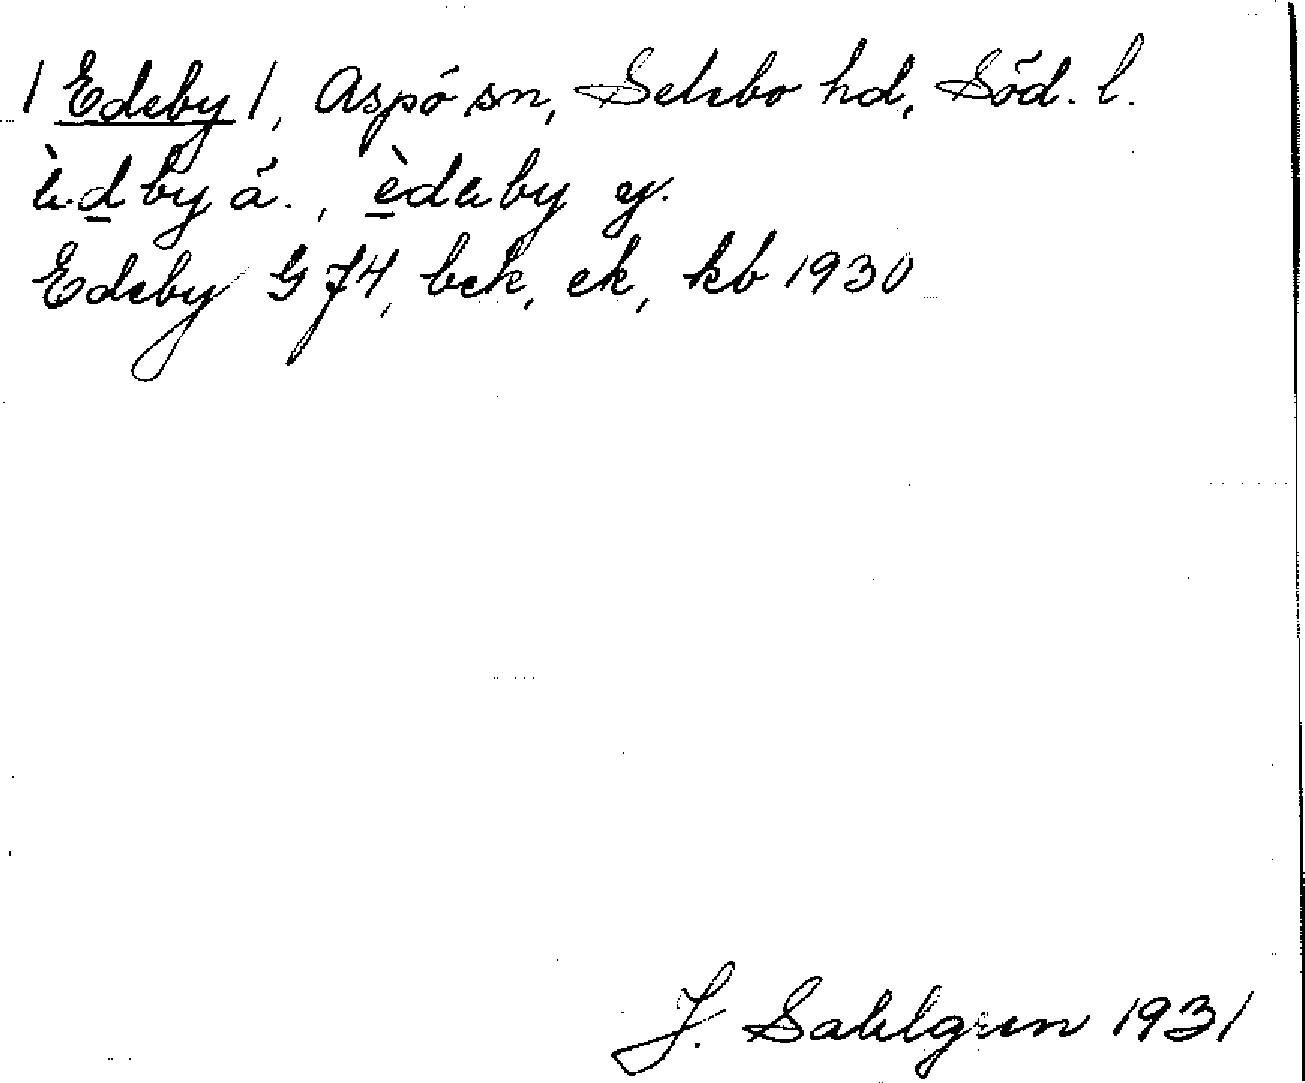 /Edeby/, Aspö sn, Selebo hd, Söd. l.
è.dby ä., èdeby y.
Edeby GJ4, bek, ek, kb 1930
J. Sahlgren 1931